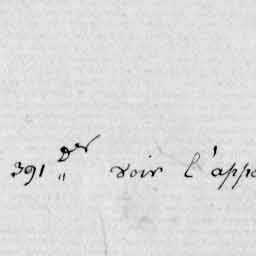 391 voir l'appo